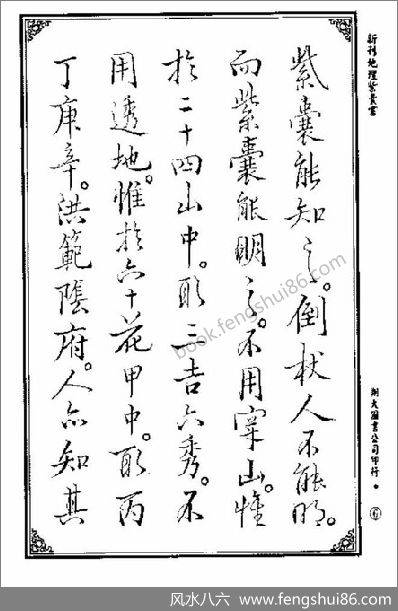 新刊地理紫囊書
紫囊能知之。倒杖人不能明。
而紫囊能明之。不用穿山。惟
於二十四山中。取三吉六秀。不
用透地。惟於六十花甲中。取丙
丁庚辛。洪範陰府。人亦知其
翔大圖書公司印行。
book.fengshui86.com
风水八六 www.fengshui86.com